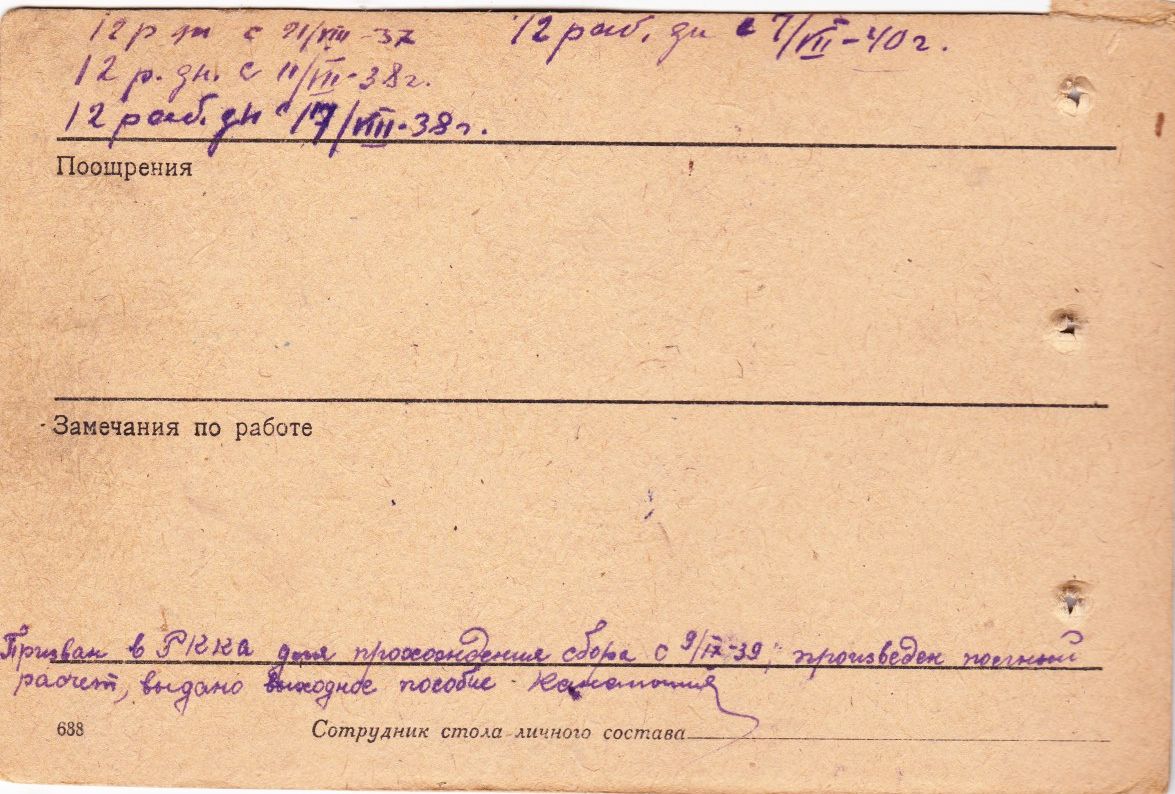 12 р дн с 21/VIII-37
12 раб. дн с 7/VII-40 г.
12 р. дн. с 11/VII-38г.
12 раб. дн с 17/VIII-38г.
Поощрения
Замечания по работе
Призван в РККА для прохождения сбора с 9/IX-39, произведен полный
расчет, выдано выходное пособие
688
Сотрудник стола личного состава